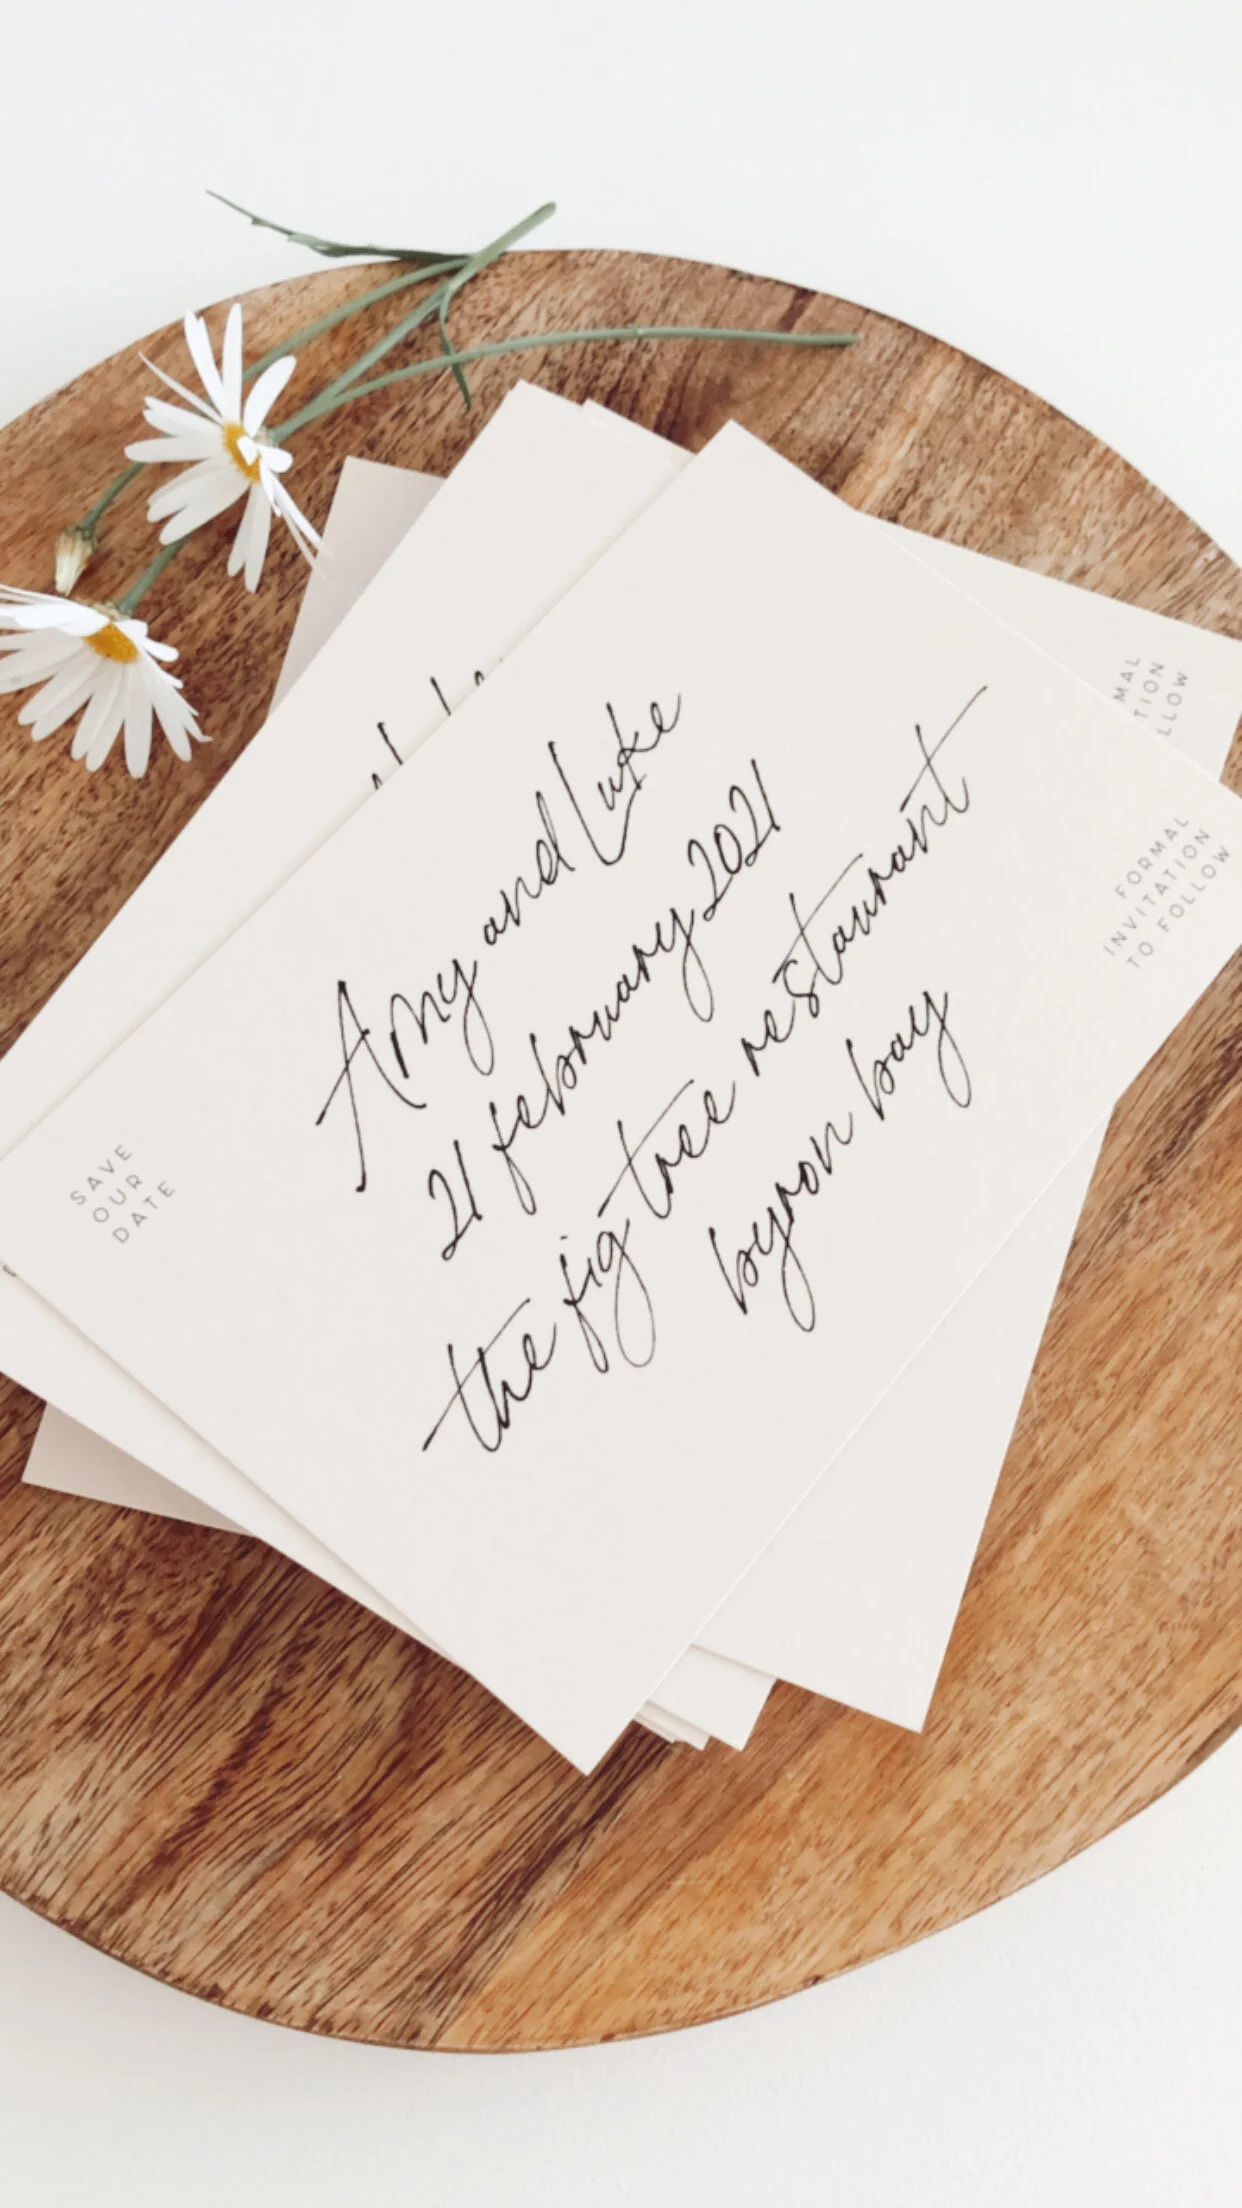 Amy and Luke
21 february 2021
the fig tree restaurant
byron bay
SAVE
OUR
DATE
FORMAL
INVITATION
TO FOLLOW
MAL
TION
LLOW